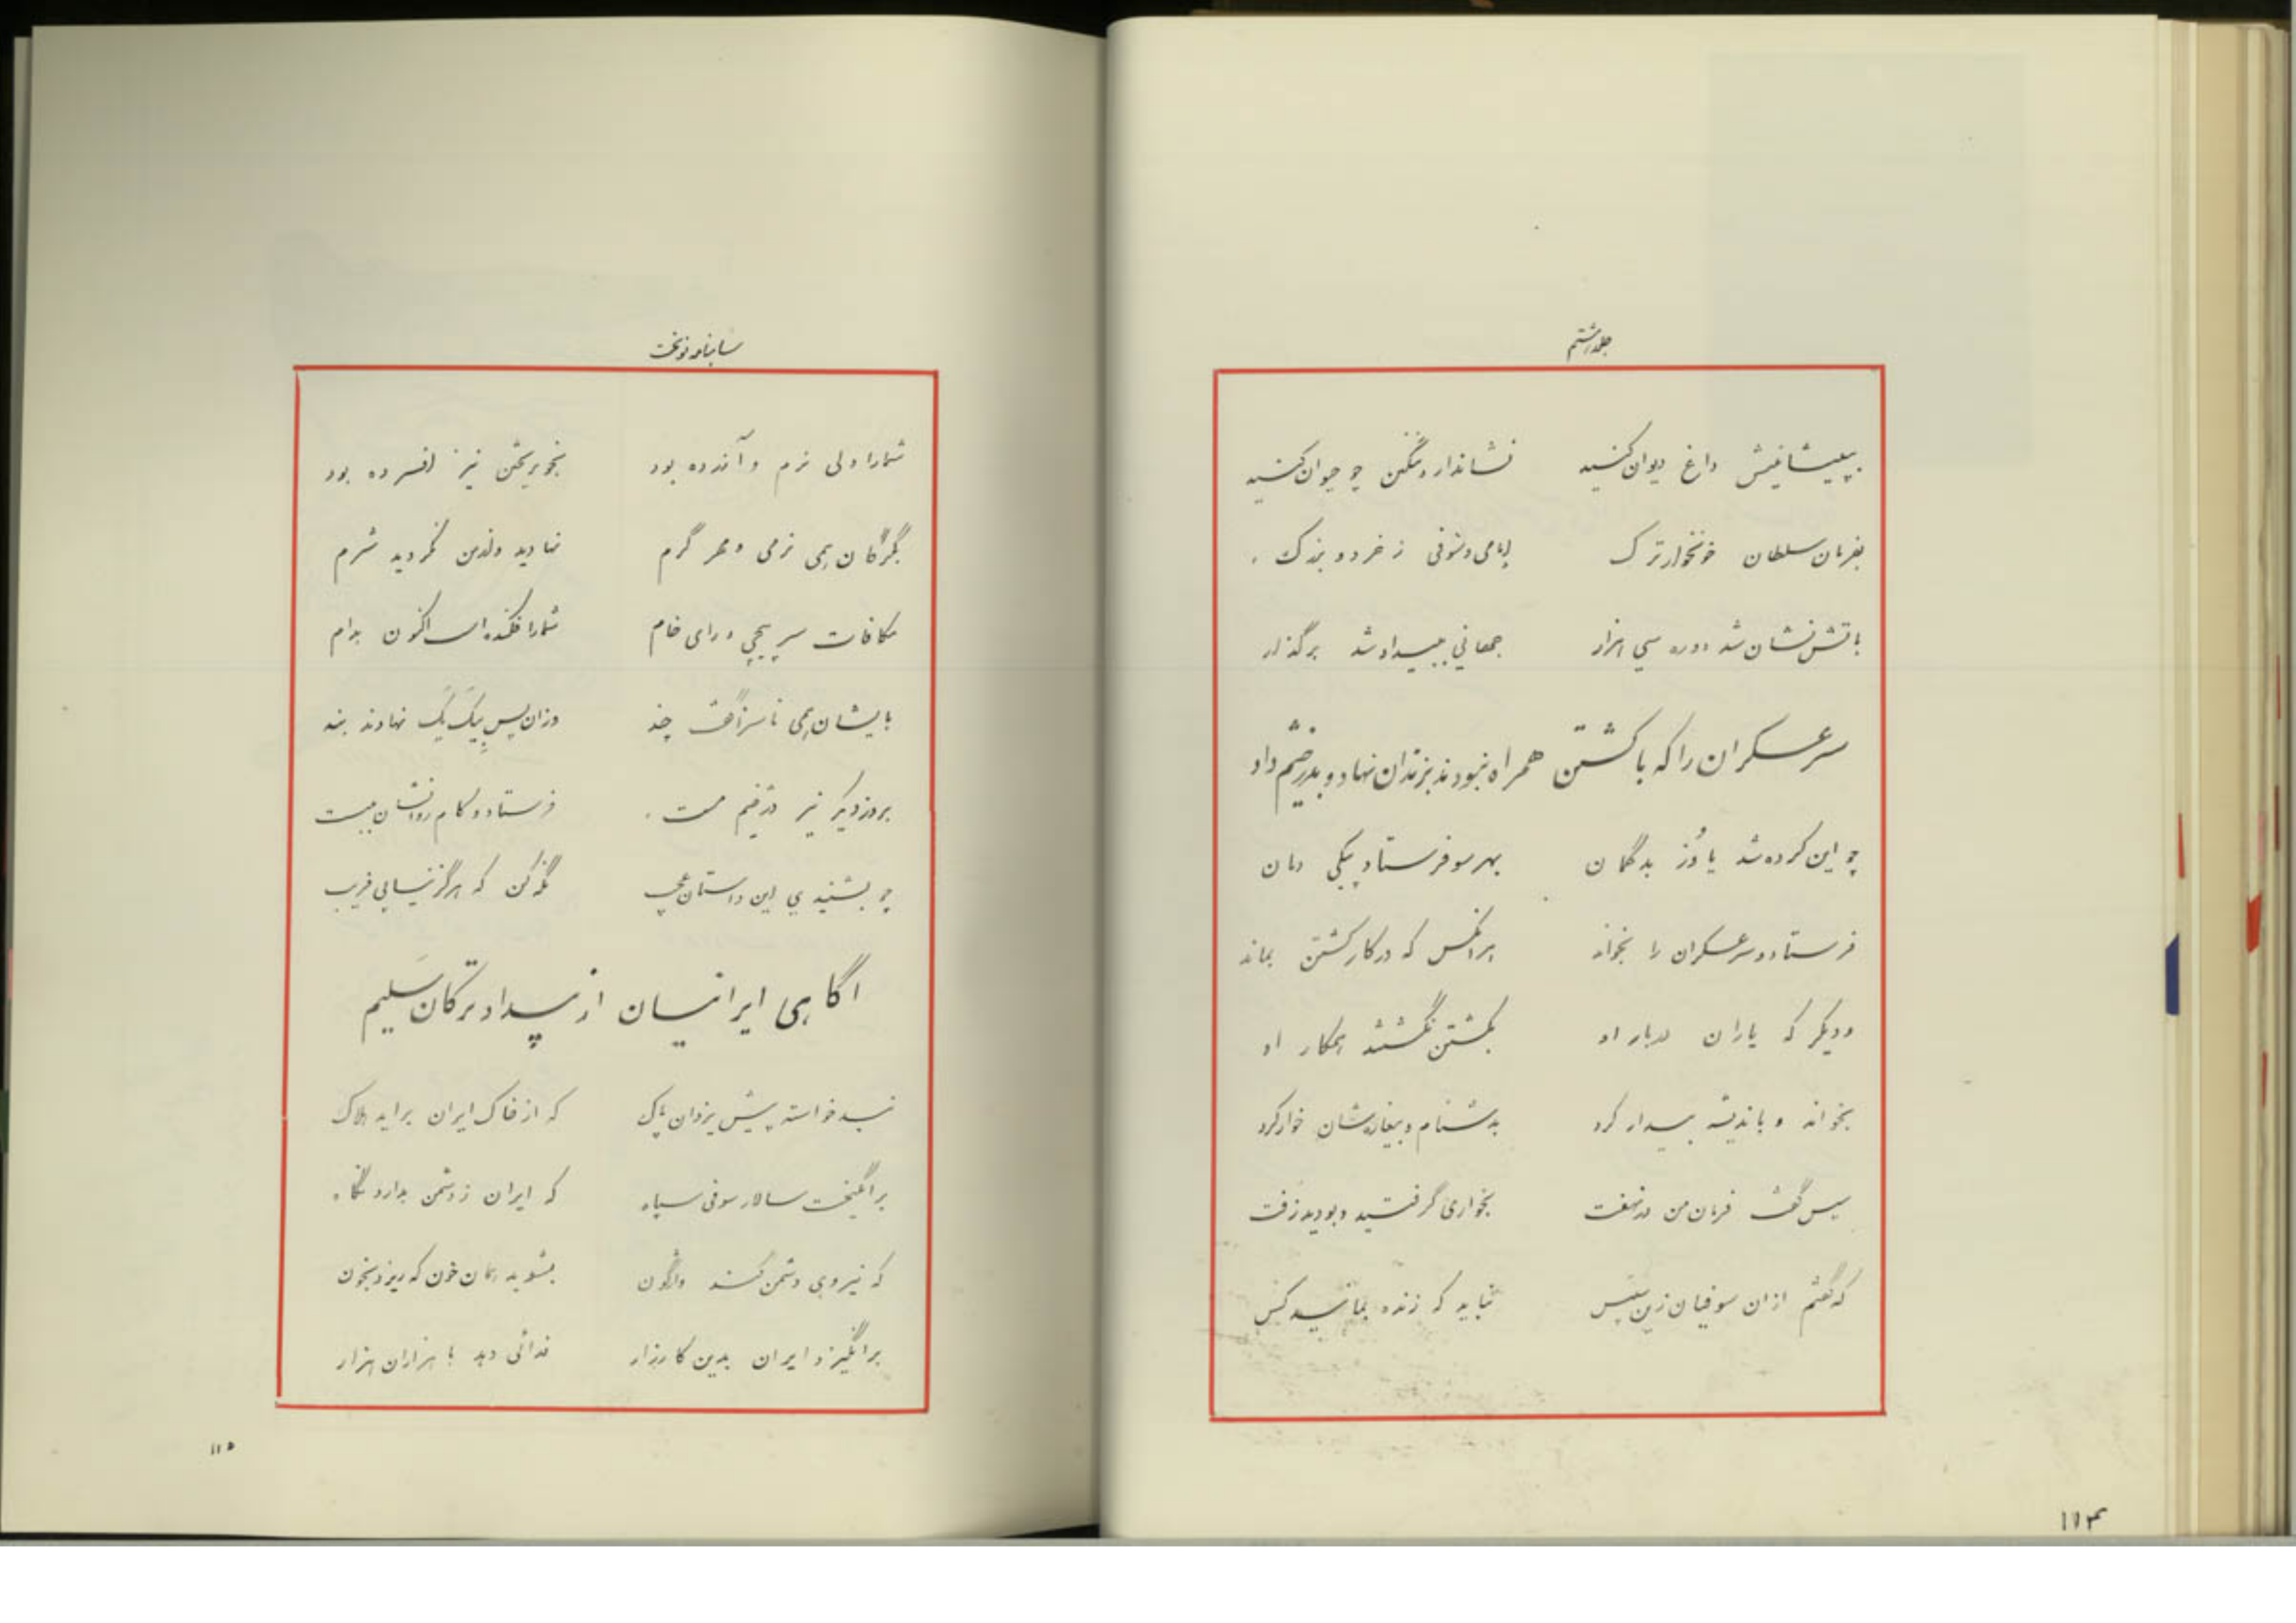 جلد هشتم
به پیشانیش داغ دیوان کنید نشاندار و ننگین چو حیوان کنید
بفرمان سلطان خونخوار ترک امامی و صوفی ز خرد و بزرگ
باتش نشان شد دوره سی هزار جهانی ببیداد شد برگذار
سرعسکران را که با کشتن همراه نبودند بزندان نهاد و بدژخیم داد
چو این کرده شد یاوُز بدگمان بهر سو فرستاد پیکی دمان
فرستاد و سرعسکران را بخواند هرانکس که در کار کشتن بماند
و دیگر که یاران دربار او بکشتن نگشتند همکار او
بخواند و باندیشه بیدار کرد بدشنام و بیغاره‌شان خوار کرد
سپس گفت فرمان من در نهفت بخواری گرفتید و بودید زفت
که گفتم ازان صوفیان زین سپس نباید که زنده بمانید کس
۱۱۴
شاهنامه نوبخت
شما را دلی نرم و آزرده بود بخویریختن نیز افسرده بود
بگرگان همی نرمی و مهر گرم نمادید وز من نکردید شرم
مکافات سرپیچی و رای خام شما را فکنده است اکنون بدام
بایشان همی ناسزا گفت چند وزان پس بیک یک نهادند بند
بروز دیگر نیز دژخیم مست فرستاد و کام روانشان ببست
چو بشنیدی این داستان عجیب نگه کن که هرگز نیابی فریب
اگاهی ایرانیان از بیداد ترکان سَلیم
که از خاک ایران براید هلاک
برانگیخت سالار صوفی سپاه که ایران ز دشمن بدارد نگاه
که نیروی دشمن کند واژگون بشوید همان خون که ریزد بخون
برانگیزد ایران بدین کارزار فدائی دهد با هزاران هزار
۱۱۵